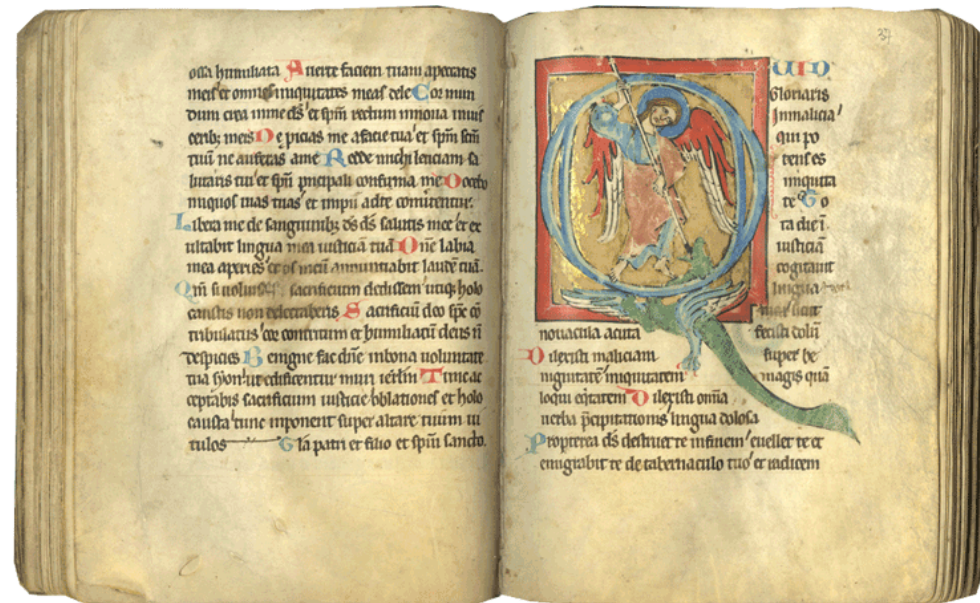 ossa humiliata Auerte faciem tuam apeccatis
meis et omnes iniquitates meas dele Cor mun
dum crea in me ds et spm rectum innoua in uis
ceribz meis Ne picias me afacie tua et spm scm
tuu ne auferas ame Redde michi leticiam sa
lutaris tui et spu pncipali confirma me Docebo
iniquos uias tuas et impii adte conuertentur.
Libera me de sanguinibz ds ds salutis mee et ex
ultabit lingua mea iusticia tua One labia
mea aperies et os meu annuntiabit laude tua.
Qm si uoluisses sacrificium dedissem utiqz holo
caustis non delectaberis Sacrificiu deo sps co
tribulatus cor contritum et humiliatu deus n
despicies Benigne fac dne inbona uoluntate
tua syon ut edificentur muri ierlm Tunc ac
ceptabis sacrificium iusticie oblationes et holo
causta tunc inponent super altare tuum ui
tulos Gla patri et filio et spui sancto.
37
QUID
Gloriaris
Inmalicia
qui po
tens es
iniquita
te To
ta die i
iusticia
cogitauit
lingua
tua sicut
nouacula acuta fecisti dolu
Dilexisti maliciam super be
nignitate iniquitatem magis qua
loqui eqitatem Dilexisti omia
uerba pcipitationis lingua dolosa
Propterea ds destruet te infinem euellet te et
emigrabit te de tabernaculo tuo et radicem